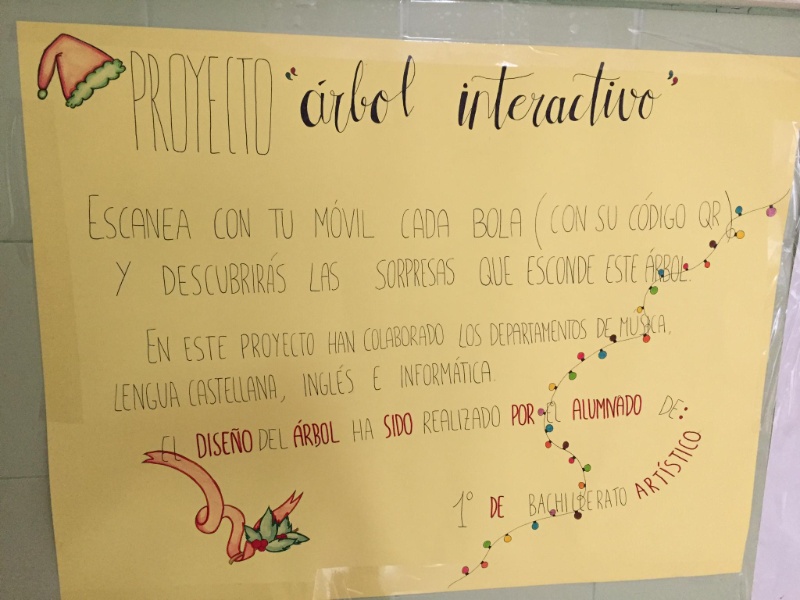 PROYECTO "árbol interactivo"
ESCANEA CON TU MÓVIL CADA BOLA (CON SU CÓDIGO QR)
Y DESCUBRIRÁS LAS SORPRESAS QUE ESCONDE ESTE ÁRBOL.
EN ESTE PROYECTO HAN COLABORADO LOS DEPARTAMENTOS DE MÚSICA,
LENGUA CASTELLANA, INGLÉS E INFORMÁTICA.
EL DISEÑO DEL ÁRBOL HA SIDO REALIZADO POR EL ALUMNADO DE:
1º DE BACHILLERATO ARTÍSTICO